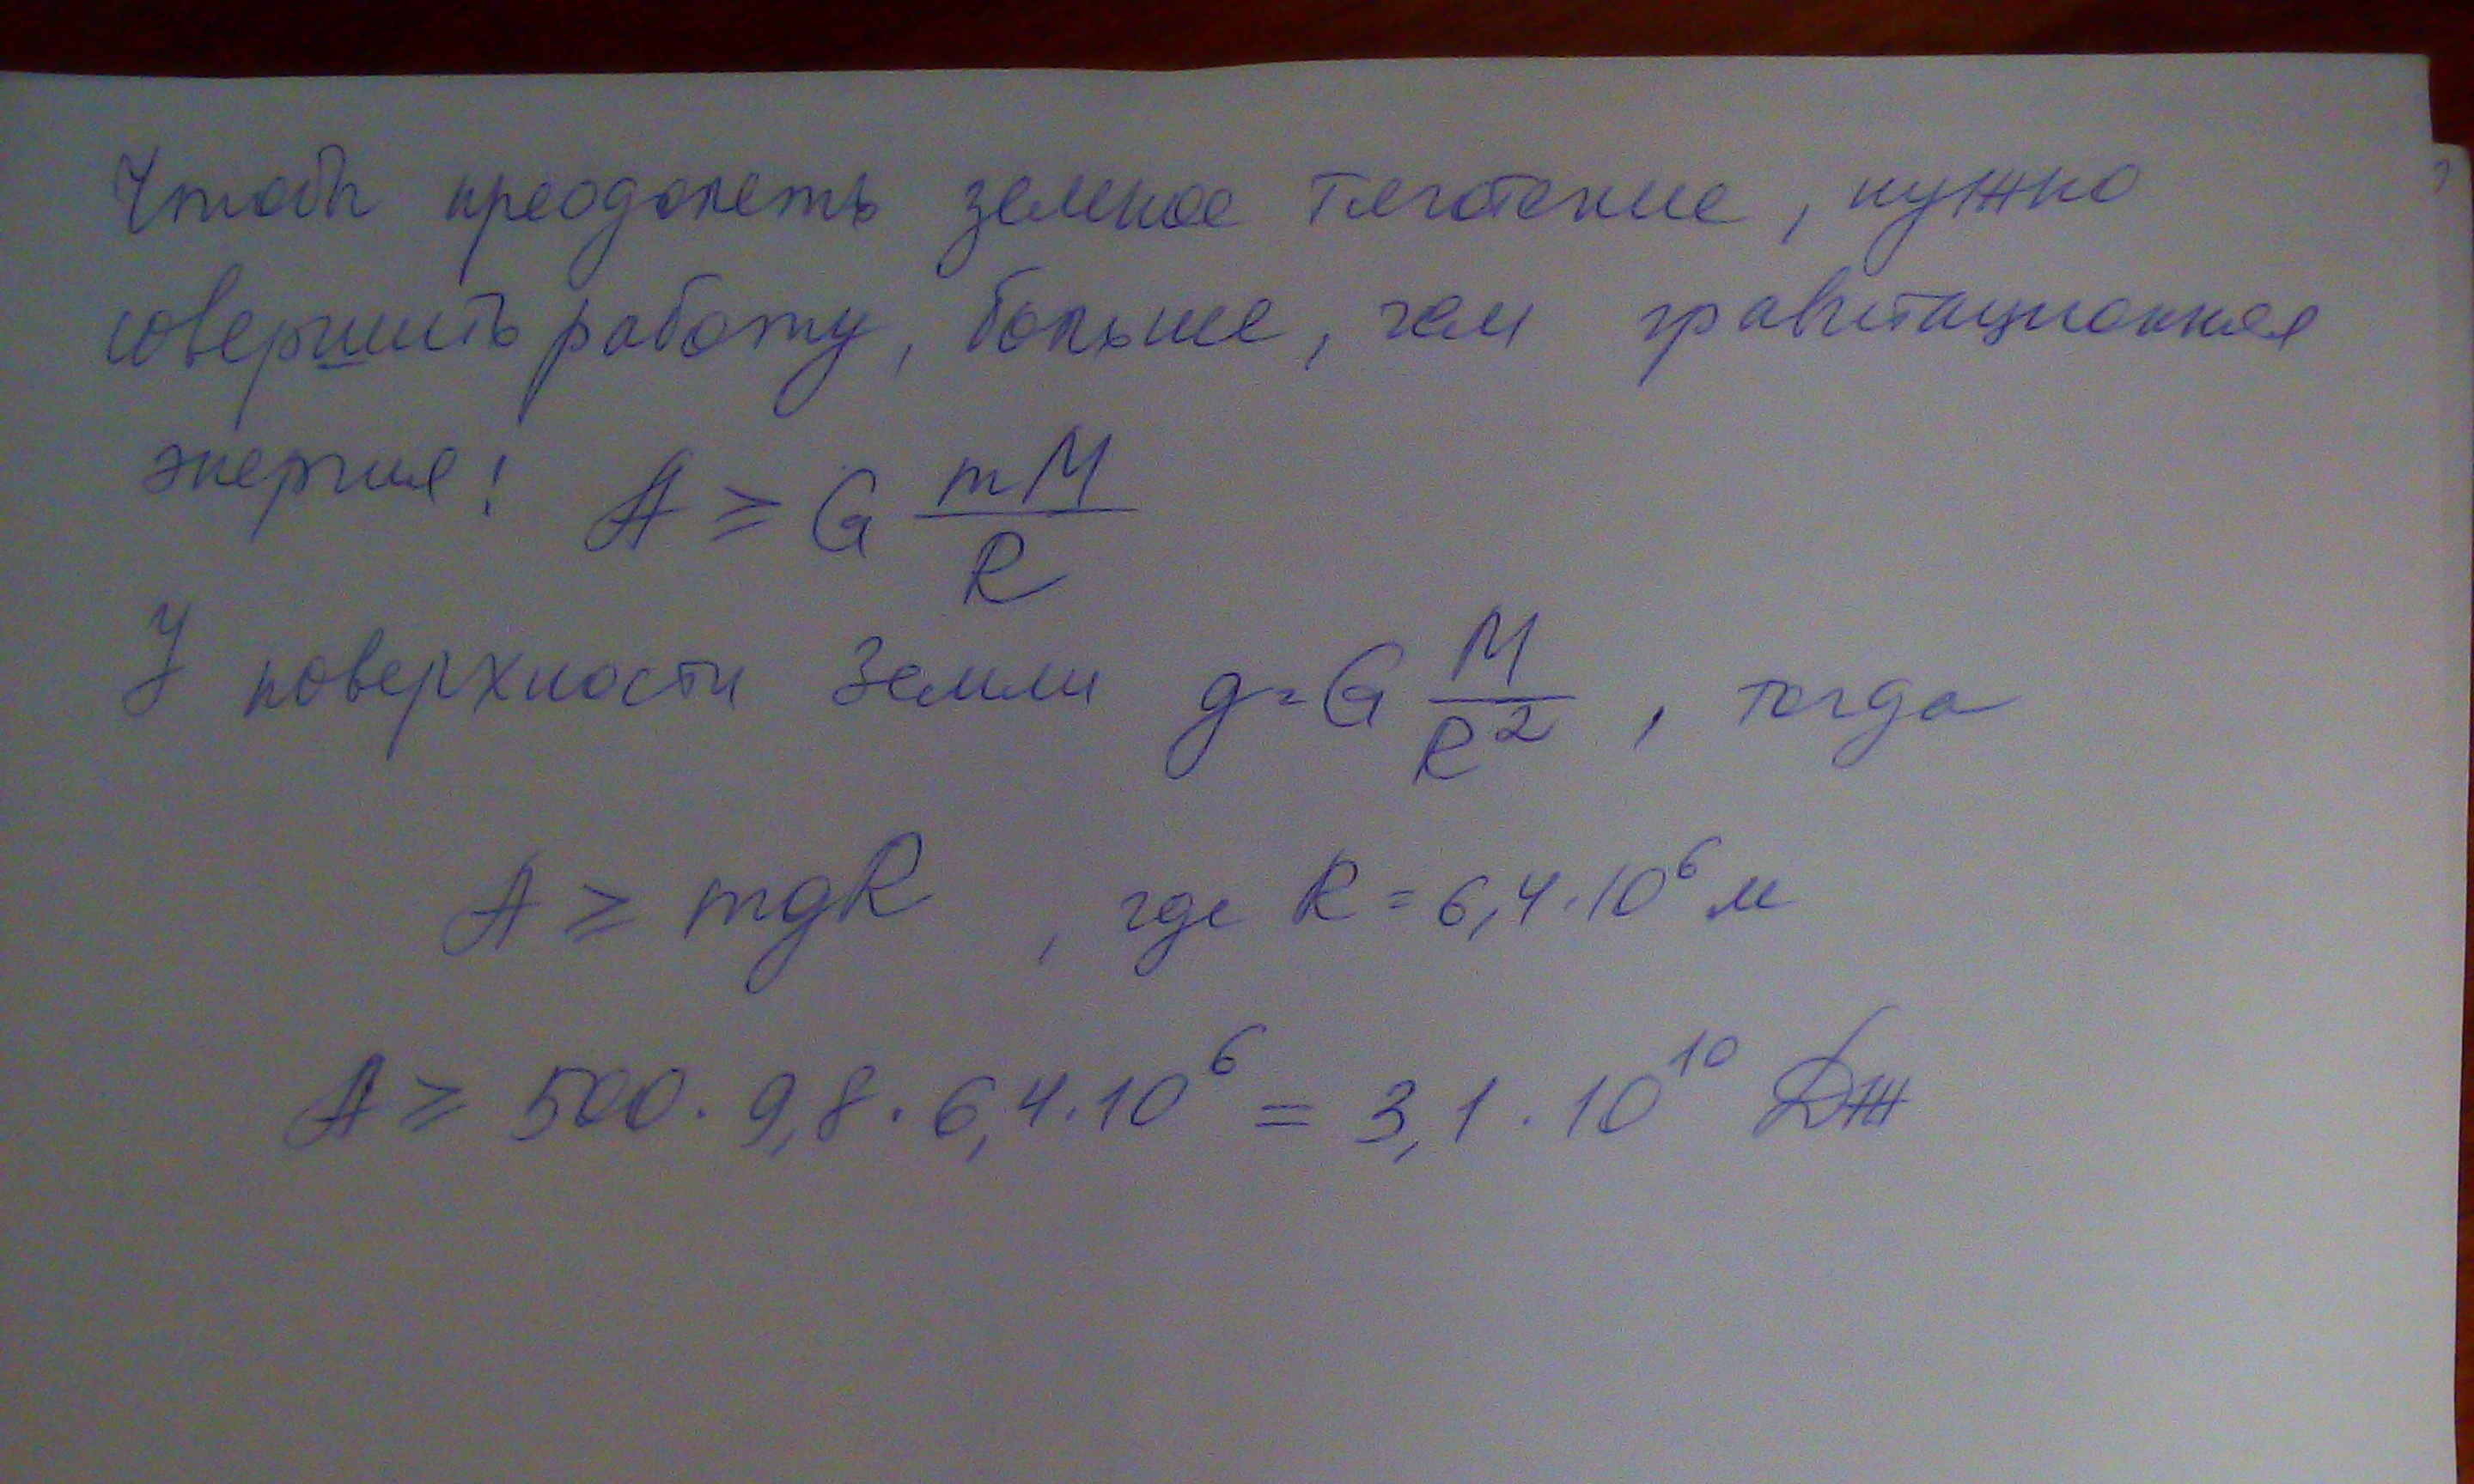 Чтобы преодолеть земное тяготение, нужно
совершить работу, больше, чем гравитационная
энергия: A ≥ G mM/R
У поверхности Земли g = G M/R², тогда
A ≥ mgR , где R = 6,4·10⁶ м
A ≥ 500·9,8·6,4·10⁶ = 3,1·10¹⁰ Дж